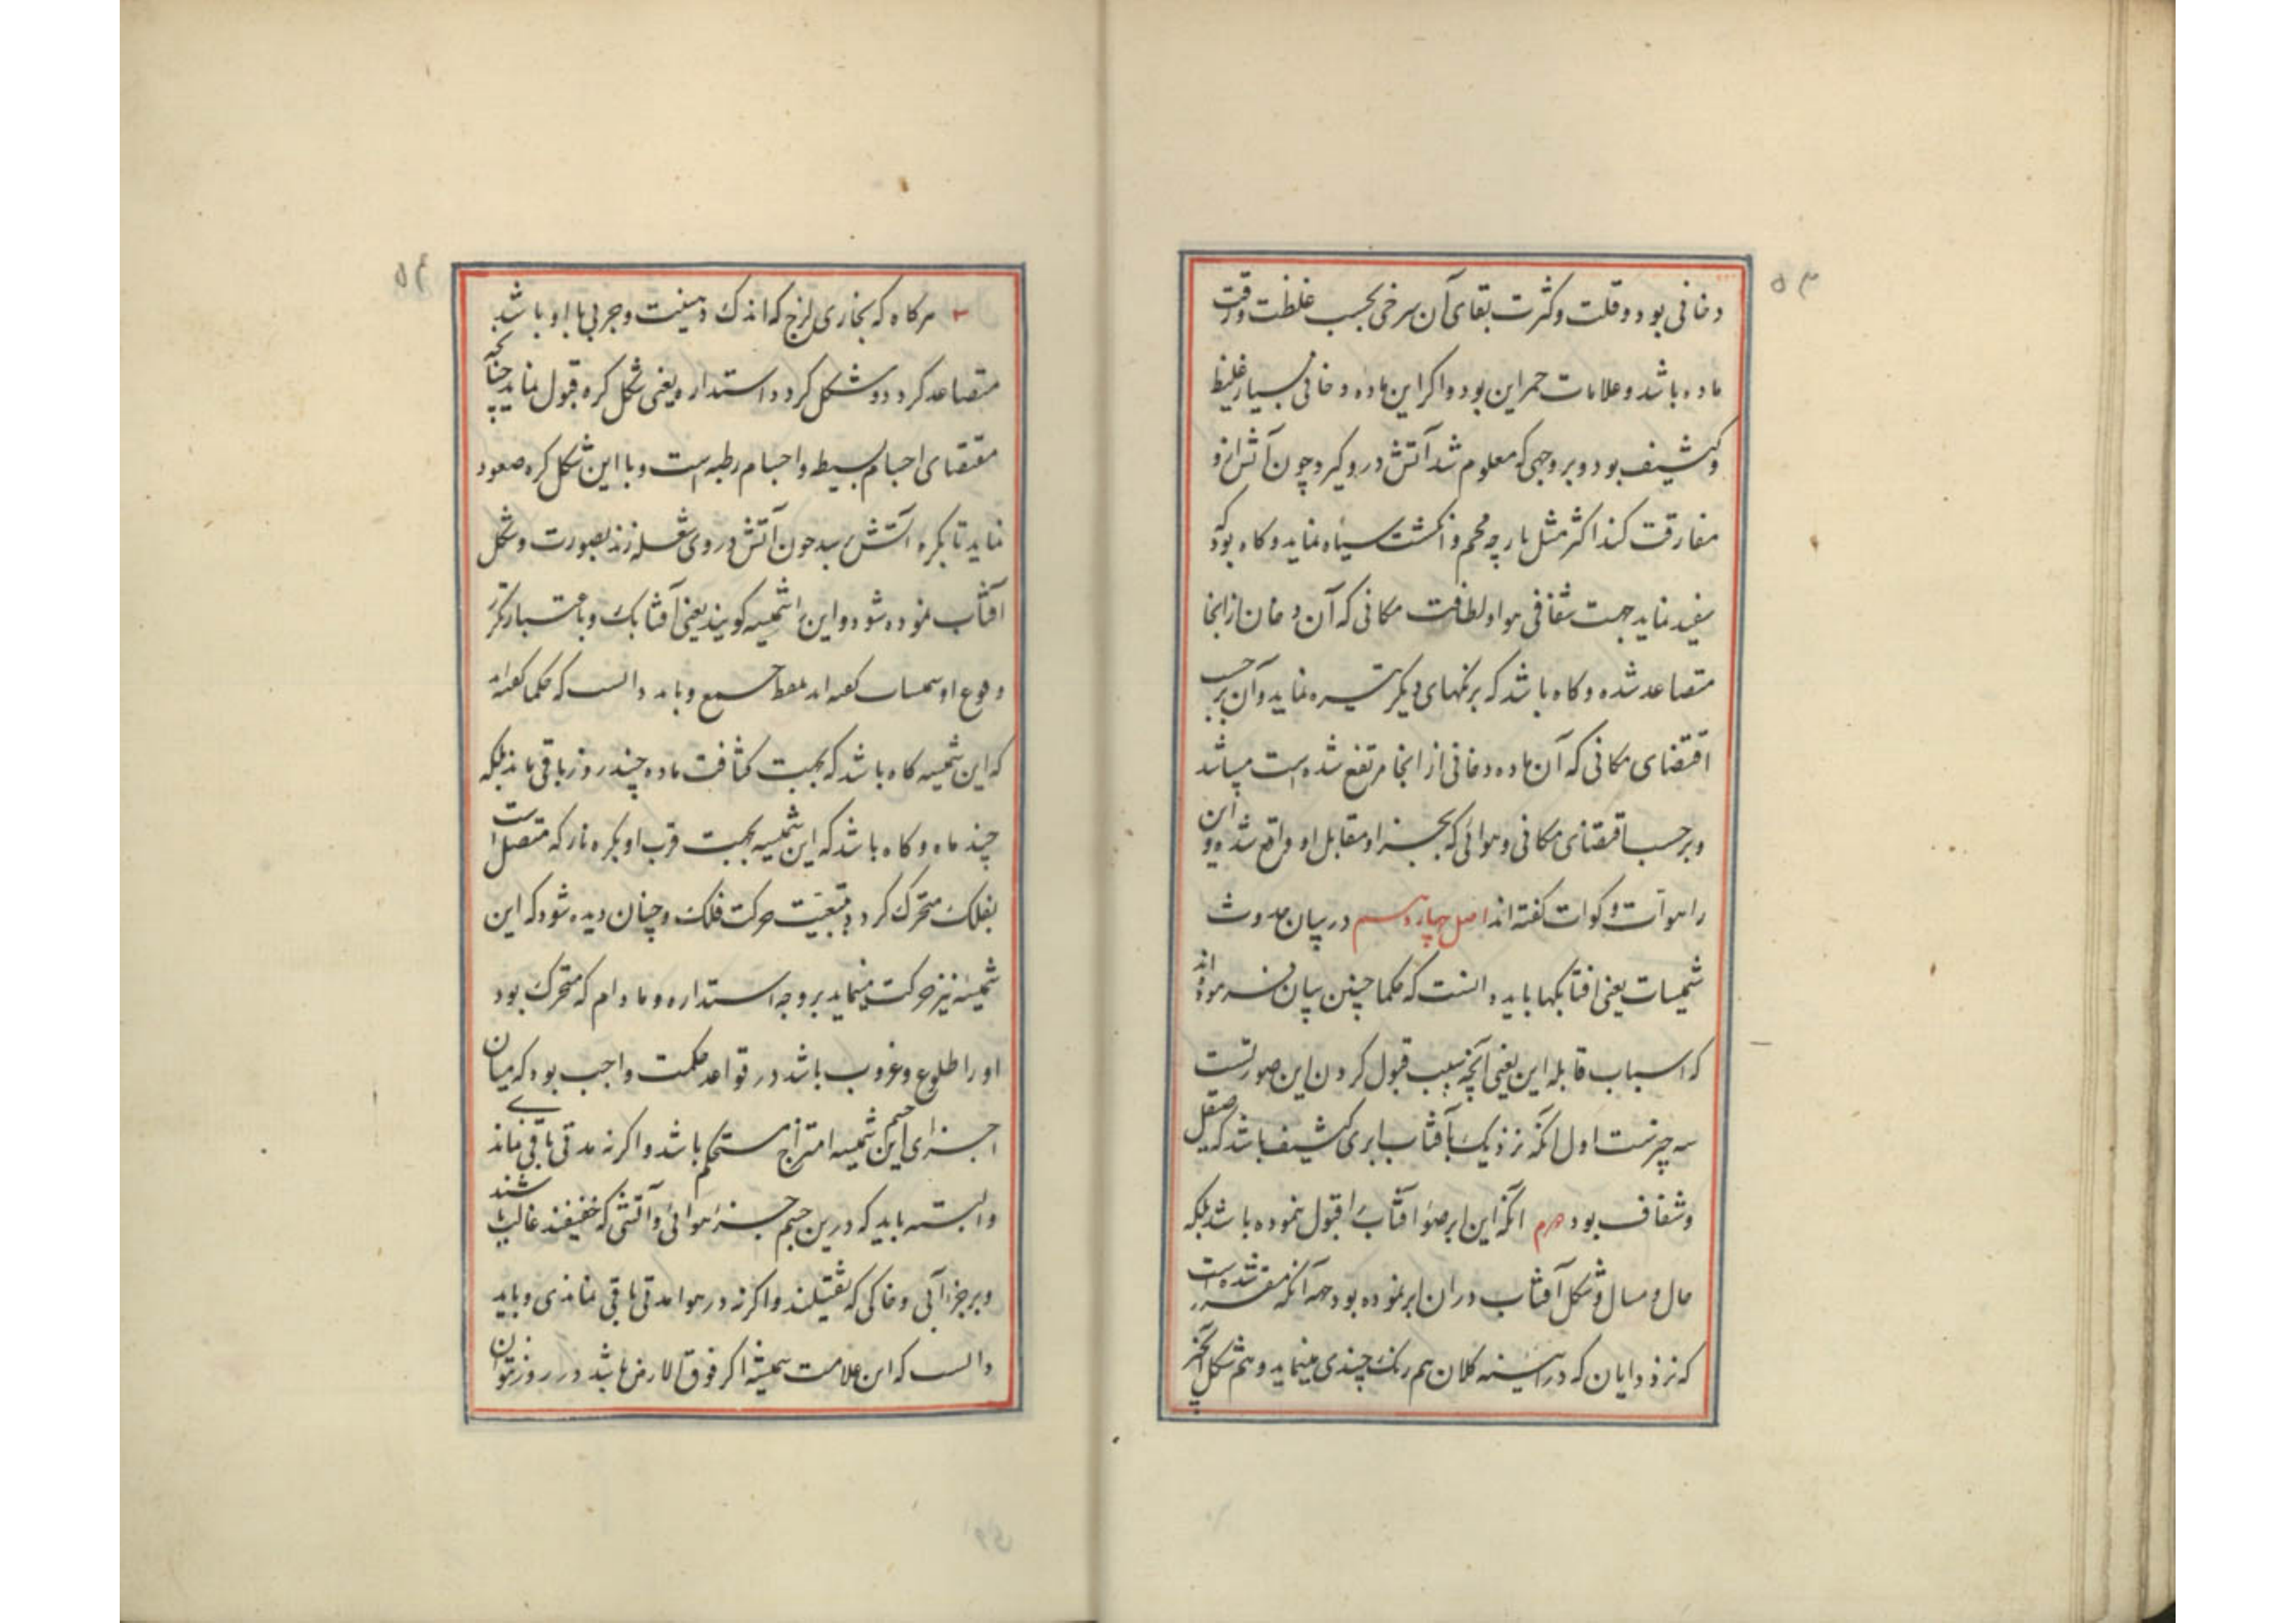 ۵۳
دخانی بود و قلت و کثرت بقای آن سرخی بحسب غلظت و رقت
ماده باشد و علامات حمر این بود و اکر این ماده دخانی بسیار غلیظ
و کثیف بود و بر وجهی که معلوم شد آتش در و کیرد چون آتش ازو
مفارقت کند اکثر مثل پارچه فحم و انکشت سیاه نماید و کاه بود که
سفید نماید جهت شفافی هوا و لطافت مکانی که آن دخان از انجا
متصاعد شده و کاه باشد که برنکهای دیکر تیره نماید و آن بر حسب
اقتضای مکانی که آن ماده دخانی از انجا مرتفع شده است میباشد
و بر حسب اقتضای مکانی و هوائی که بحیز او مقابل او واقع شده و این
را هوآت و کوات کفته اند اصل چهاردهم در بیان حدوث
شمیسات یعنی افتابکها باید دانست که حکما چنین بیان فرموده اند
که اسباب قابله این یعنی آنچه سبب قبول کردن این صورتست
سه چیزست اول انکه نزدیک بآفتاب ابری کثیف باشد که صیقل
و شفاف بود دوم انکه این ابر ضوء آفتاب را قبول نموده باشد بلکه
حال و مسال و شکل آفتاب دران ابر نموده بود جهه آنکه مقرر شده است
که نزد دایان که در آیینه کلان هم رنک چندی مینماید و هم شکل
۵۴
هرکاه که بخاری لزج که اندک دهنیت و چربی با او باشد
متصاعد کردد و شکل کردد و استداره یعنی شکل کره قبول نماید چنانچه
مقتضای اجسام بسیط و اجسام رطبه است و با این شکل کره صعود
نماید تا بکره آتش رسد چون آتش در وی شعله زند بصورت و شکل
آفتاب نموده شود و این را شمیسه کویند یعنی آفتابک و باعتبار تکرر
وقوع او شمیسات کفته اند بلفظ جمع و باید دانست که حکما کفته اند
که این شمیسه کاه باشد که بجهت کثافت ماده چند روز باقی ماند بلکه
چند ماه و کاه باشد که این شمیسه بجهت قرب او بکره نار که متصل است
بفلک متحرک کردد بتبعیت حرکت فلک و چنان دیده شود که این
شمیسه نیز حرکت مینماید بر وجه استداره و مادام که متحرک بود
او را طلوع و غروب باشد در قواعد حکمت واجب بود که میان
اجزای جسم این شمیسه امتزاج مستحکم باشد و اکر نه مدتی باقی نماند
و البته باید که درین جسم جزء هوائی و آتشی که خفیفند غالب باشند
و بر جزء آبی و خاکی که ثقیلند و اکر نه در هوا مدتی باقی نماندی و باید
دانست که این علامت شمیسه اکر فوق الارض باشد در روز توان